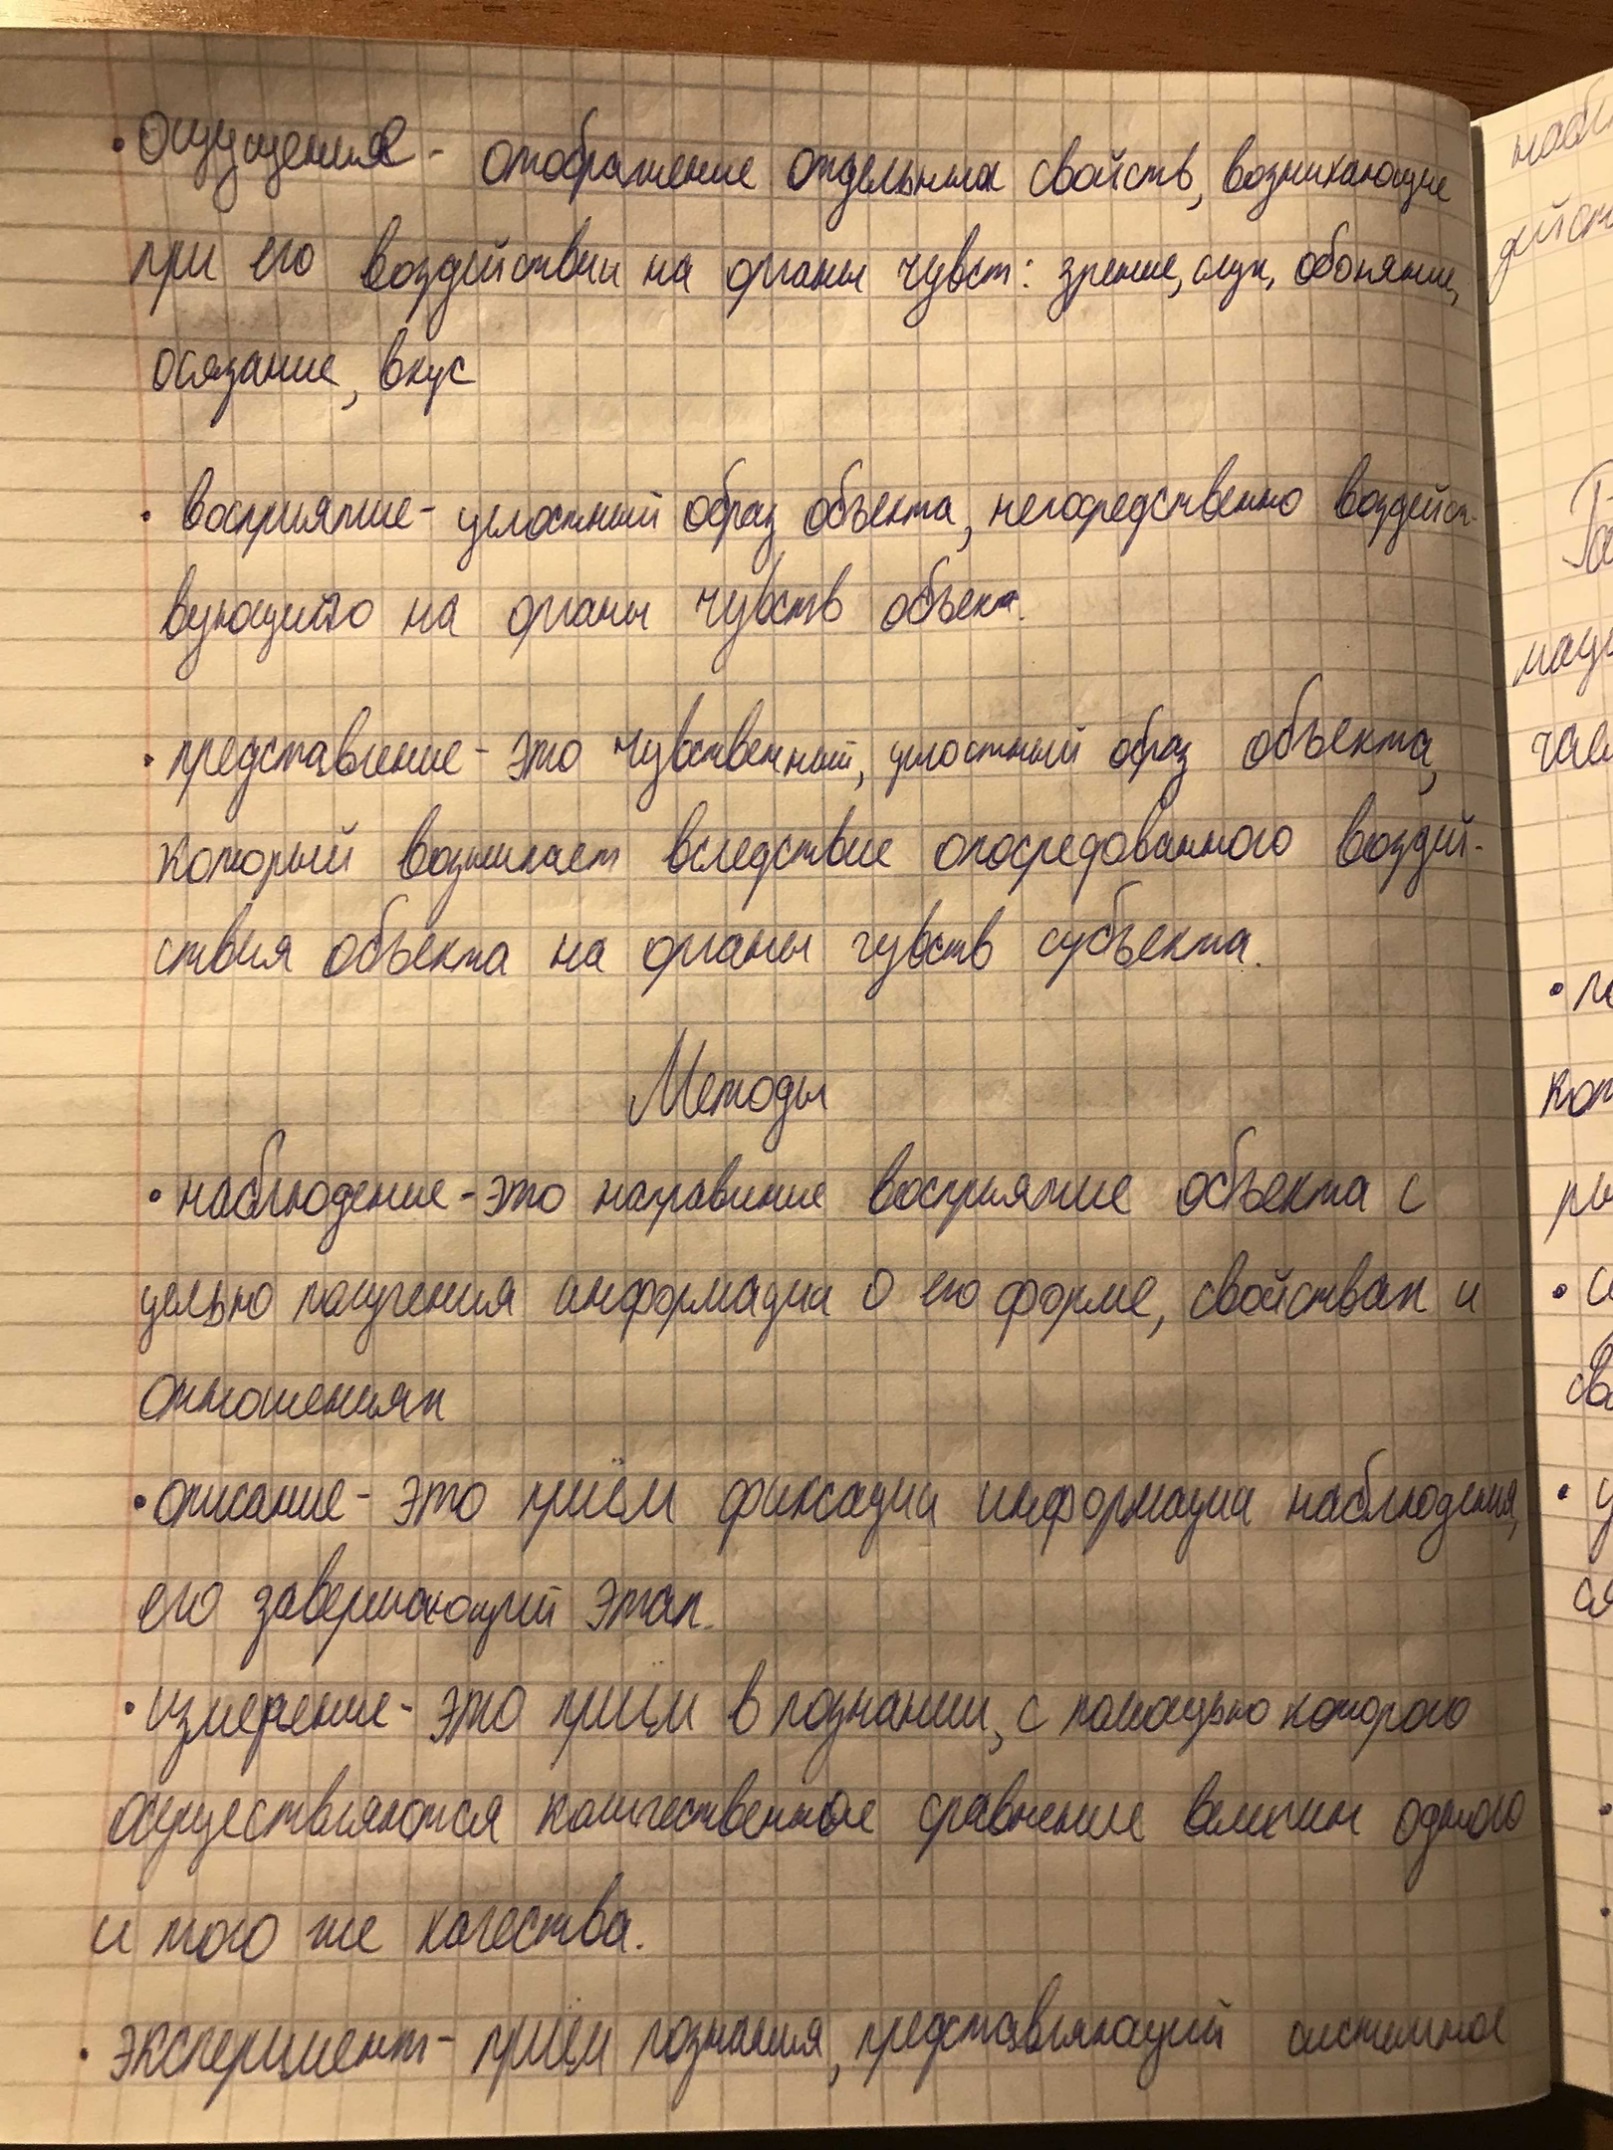 • Ощущения - отображение отдельных свойств, возникающие
при его воздействии на органы чувст: зрение, слух, обоняние,
осязание, вкус
• восприятие - целостный образ объекта, непосредственно воздейст-
вующего на органы чувств объект.
• представление - это чувственный, целостный образ объекта,
который возникает вследствие опосредованного воздей-
ствия объекта на органы чувств субъекта.
Методы
• наблюдение - это направение восприятие объекта с
целью получения информации о его форме, свойствах и
отношениях
• описание - это приём фиксации информации наблюдения,
его завершающий этап.
• измерение - это приём в познании, с помощью которого
осуществляются количественное сравнение величин одного
и того же качества.
• эксперимент - приём познания, представляющий системное